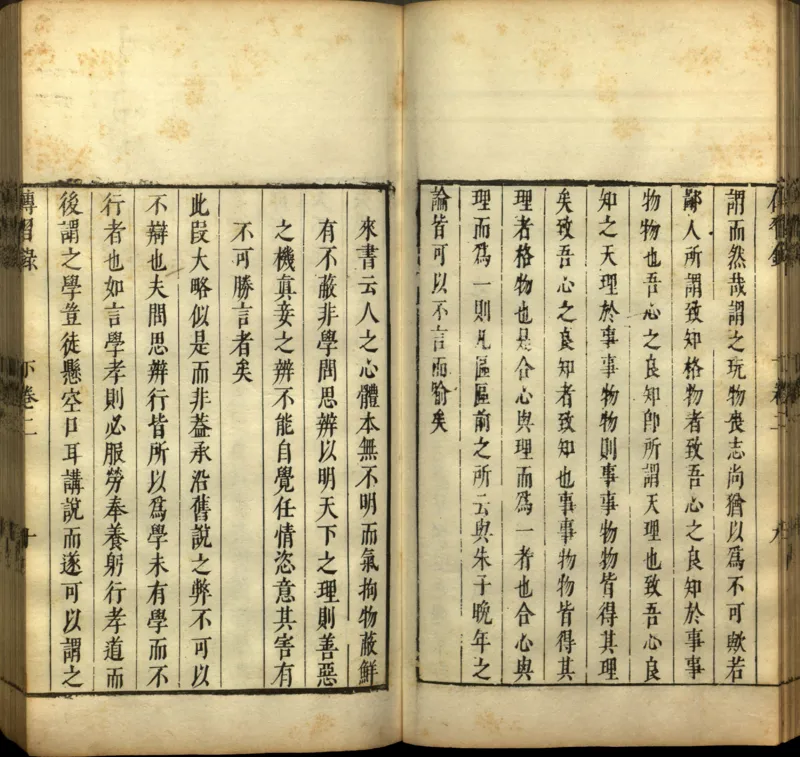 謂而然哉謂之玩物喪志尚猶以爲不可歟若
鄙人所謂致知格物者致吾心之良知於事事
物物也吾心之良知卽所謂天理也致吾心良
知之天理於事事物物則事事物物皆得其理
矣致吾心之良知者致知也事事物物皆得其
理者格物也是合心與理而爲一者也合心與
理而爲一則凡區區前之所云與朱子晚年之
論皆可以不言而喻矣
來書云人之心體本無不明而氣拘物蔽鮮
有不蔽非學問思辨以明天下之理則善惡
之機真妄之辨不能自覺任情恣意其害有
不可勝言者矣
此段大略似是而非葢承沿舊說之弊不可以
不辯也夫問思辨行皆所以爲學未有學而不
行者也如言學孝則必服勞奉養躬行孝道而
後謂之學豈徒懸空口耳講說而遂可以謂之
傳習錄 下卷二 十